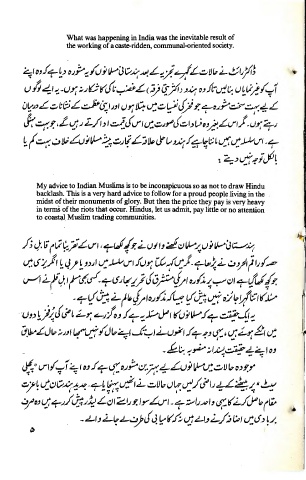 What was happening in India was the inevitable result of
the working of a caste-ridden, communal-oriented society.
ڈاکٹر رائٹ نے حالات کے گہرے تجزیہ کے بعد ہندستانی مسلمانوں کو یہ مشورہ دیا ہے کہ وہ اپنے
آپ کو غیر نمایاں بنائیں تاکہ وہ ہندو دکٹر فرقہ کے غضب ناکی کا شکار نہ ہوں۔ یہ ایسے لوگوں
کے لیے بہت سخت مشورہ ہے جو فخر کی نفسیات میں مبتلا ہوں اور اپنی عظمت کے نشانات کے درمیان
رہتے ہوں۔ مگر اس کے بغیر وہ فسادات کی صورت میں اس کی قیمت ادا کرتے رہیں گے، جو بہت مہنگی
ہے۔ اس سلسلہ میں ہمیں ماننا چاہیے کہ ہندو ساحلی علاقہ کے تجارت پیشہ مسلمانوں کے خلاف بہت کم یا
بالکل توجہ نہیں دیتے :
My advice to Indian Muslims is to be inconspicuous so as not to draw Hindu
backlash. This is a very hard advice to follow for a proud people living in the
midst of their monuments of glory. But then the price they pay is very heavy
in terms of the riots that occur. Hindus, let us admit, pay little or no attention
to coastal Muslim trading communities.
ہندستانی مسلمانوں پر مسلمان لکھنے والوں نے جو کچھ لکھا ہے، اس کے تقریباً تمام قابل ذکر
حصہ کو راقم الحروف نے پڑھا ہے۔ مگر میں کہہ سکتا ہوں کہ اس سلسلہ میں اردو یا عربی یا انگریزی میں
جو کچھ لکھا گیا ہے ان سب پر مذکورہ امریکی مستشرق کی تحریر بھاری ہے۔ کسی بھی مسلم اہل قلم نے اس
مسئلہ کا اتنا گہرا جائزہ نہیں پیش کیا جیسا کہ مذکورہ امریکی عالم نے پیش کیا ہے۔
یہ ایک حقیقت ہے کہ مسلمانوں کا اصل مسئلہ یہ ہے کہ وہ گزرے ہوئے ماضی کی پُر فخر یادوں
میں اٹکے ہوئے ہیں، یہی وجہ ہے کہ انھوں نے اب تک اپنے حال کو نہیں سمجھا اور نہ حال کے مطابق
وہ اپنے لیے حقیقت پسندانہ منصوبہ بنا سکے۔
موجودہ حالات میں مسلمانوں کے لیے بہترین مشورہ یہی ہے کہ وہ اپنے آپ کو اس "پچھلی
سیٹ" پر بیٹھنے کے لیے راضی کر لیں جہاں حالات نے انھیں پہنچایا ہے۔ جدید ہندستان میں باعزت
مقام حاصل کرنے کا یہی واحد راستہ ہے۔ اس کے سوا جو راستے ان کے لیڈر پیش کر رہے ہیں وہ صرف
بربادی میں اضافہ کرنے والے ہیں نہ کہ کامیابی کی طرف لے جانے والے۔
۵